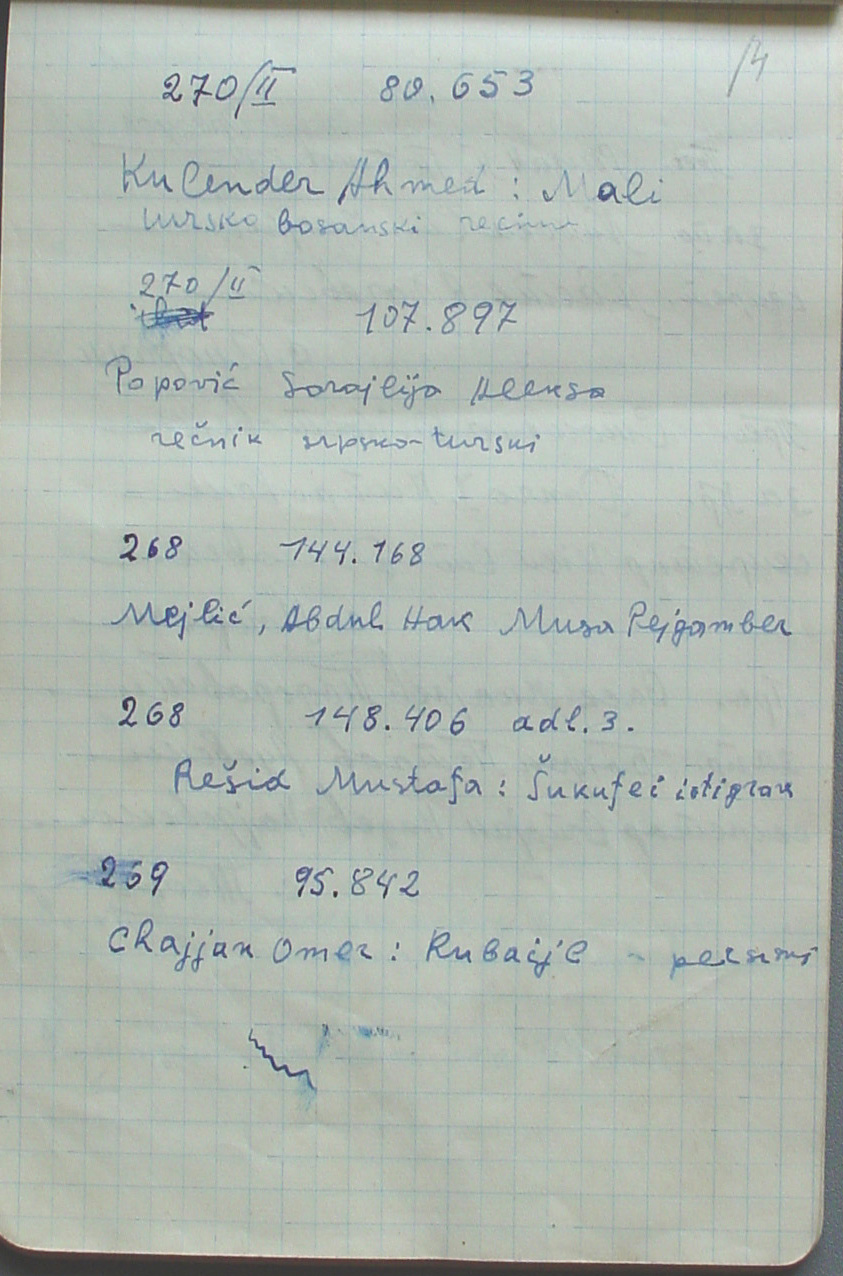 14
270/II 80.653
Kulender Ahmed : Mali
tursko bosanski rečnik
270/II
107.897
Popović Sarajlija Aleksa
rečnik srpsko-turski
268 144.168
Mejlić, Abdul Hak Musa Pejgamber
268 148.406 adl. 3.
Rešid Mustafa : Šukufei istigrak
269 95.842
Chajjam Omer : Rubaije - persiski